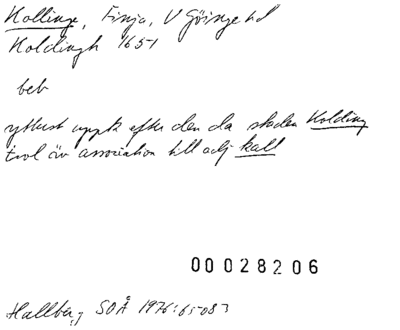 Kollinge, Finja, V Göinge hd
Koldingh 1651
beb
ytterst uppk efter den da staden Kolding
trol äv association till adj kall
00028206
Hallberg SOÅ 1976:65 o 83